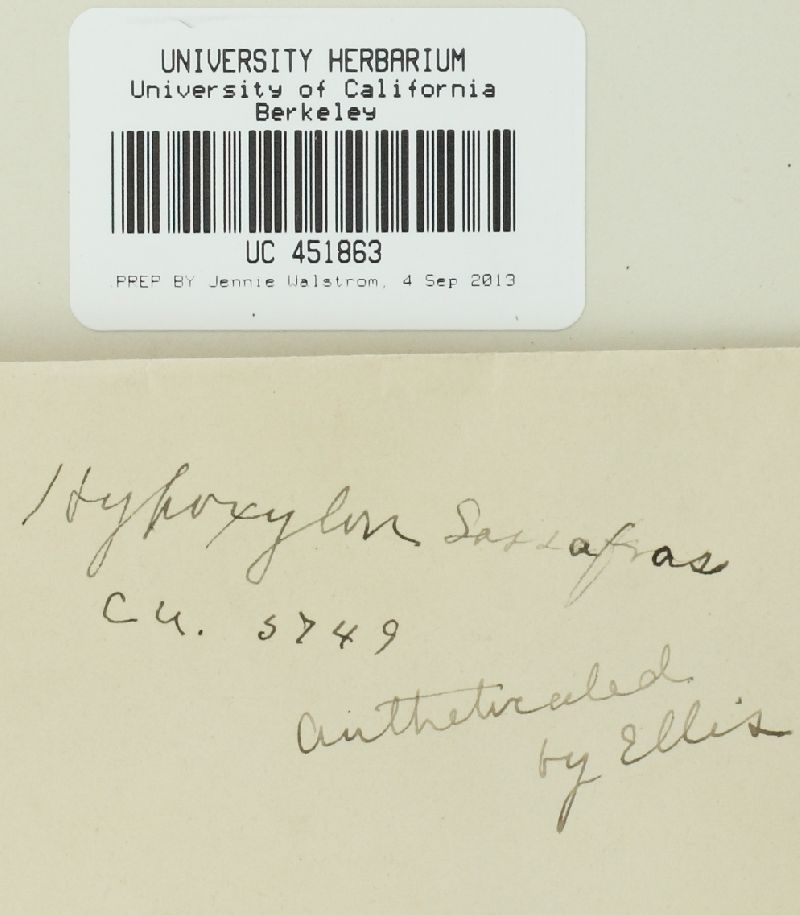 UNIVERSITY HERBARIUM
University of California
Berkeley
UC 451863
PREP BY Jennie Walstrom, 4 Sep 2013
Hypoxylon Sassafras
C.U. 5749
autheticated
by Ellis